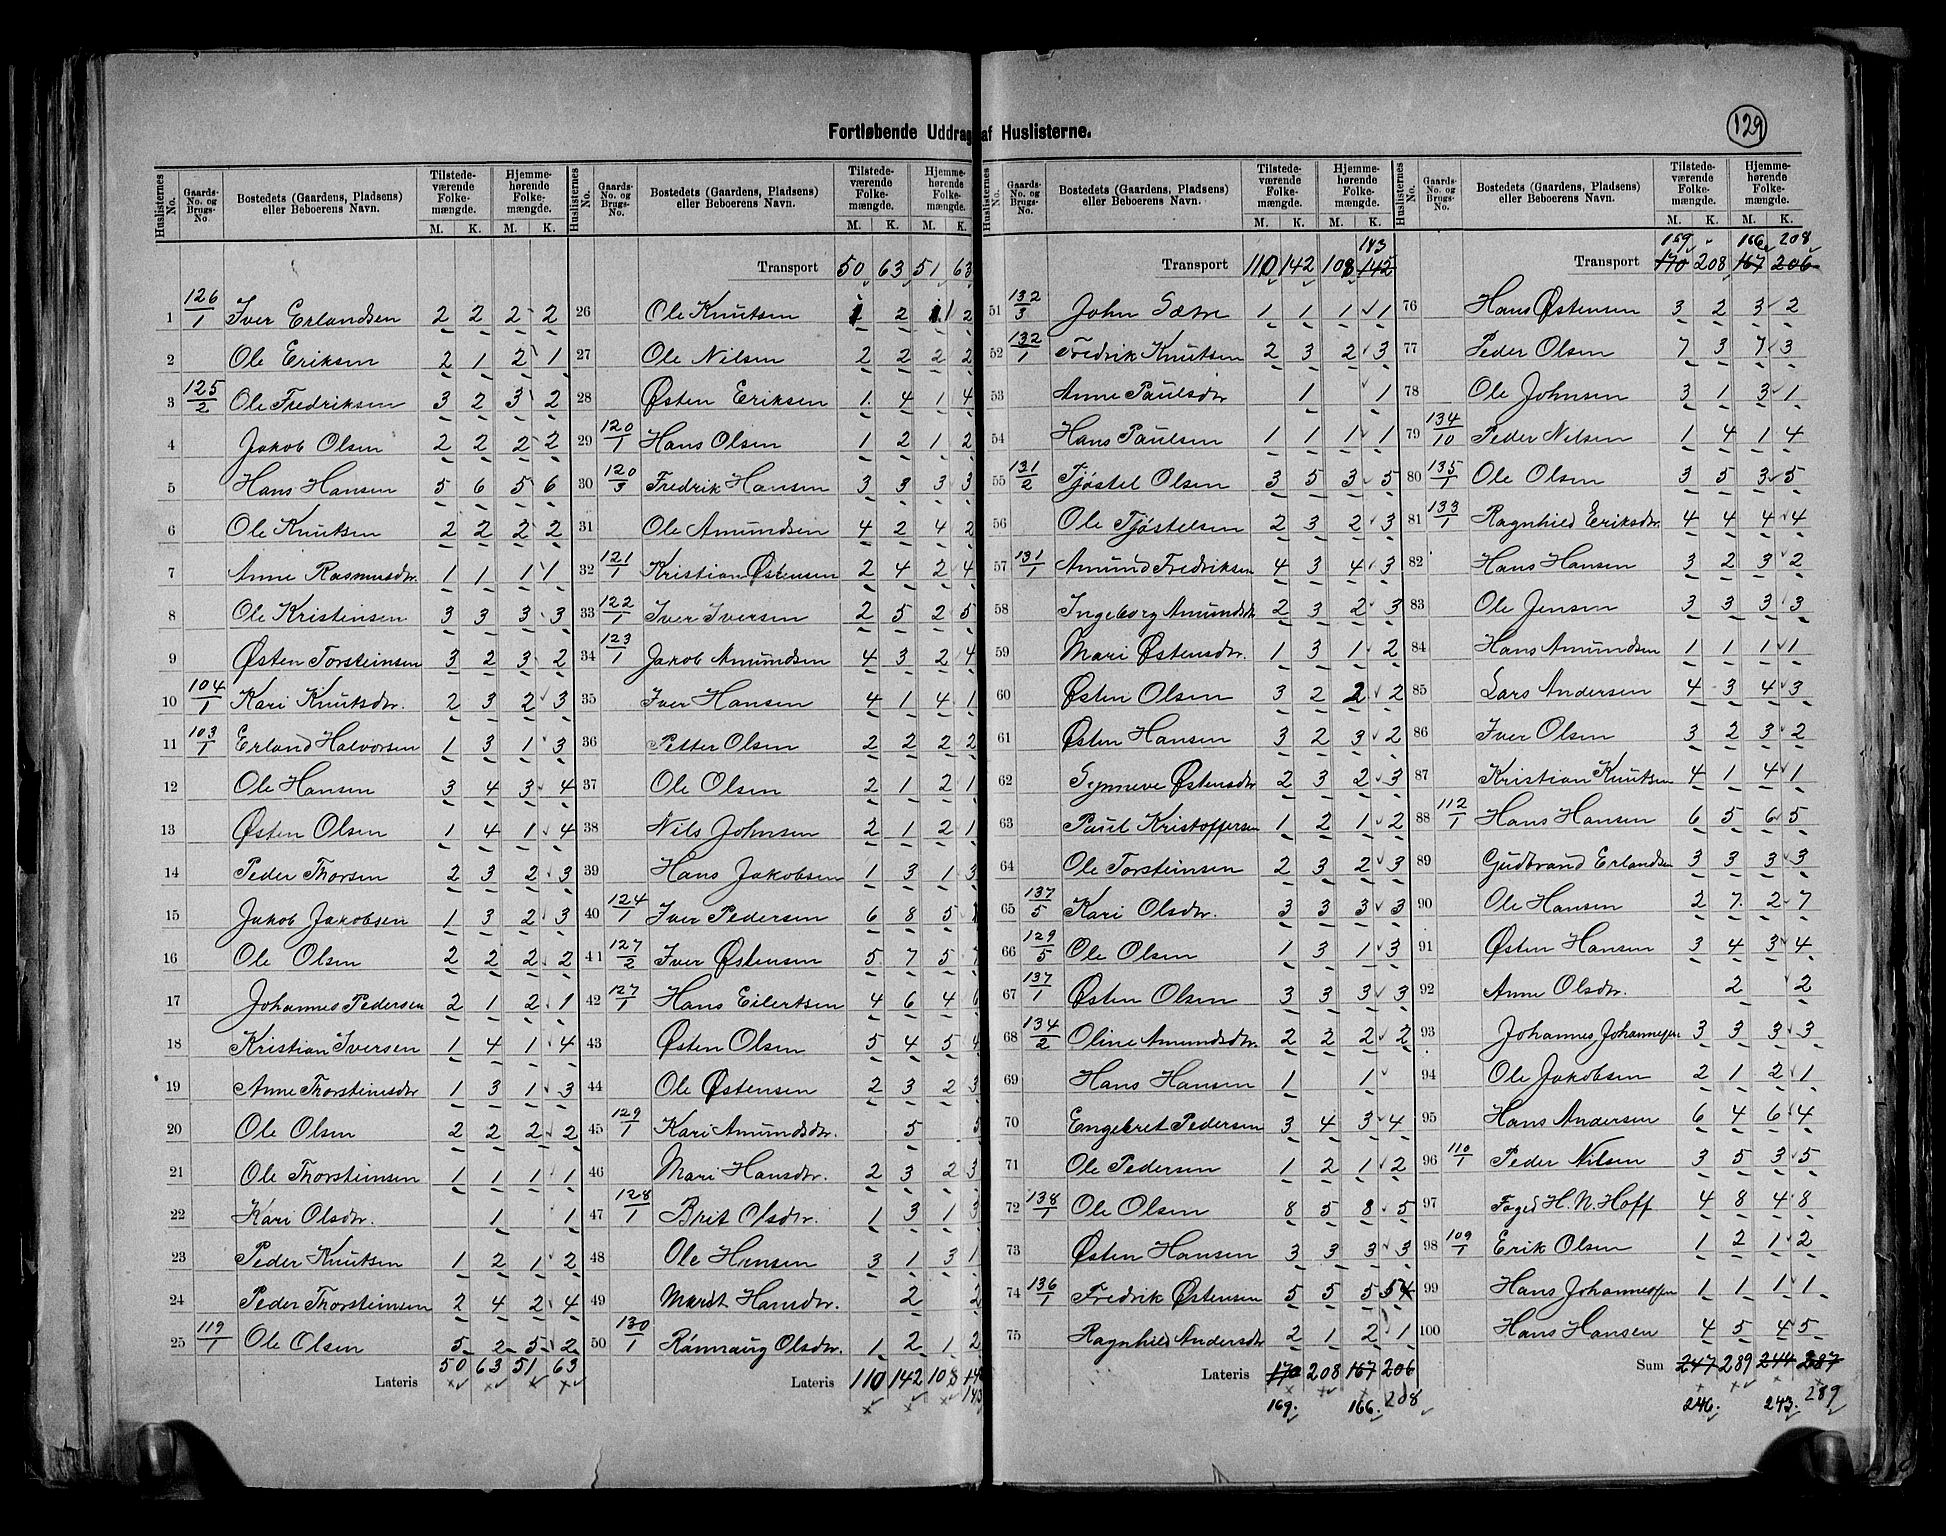 129
Fortløbende Uddrag af Huslisterne.
Huslisternes No. Gaards-No. og Brugs-No. Bostedets (Gaardens, Pladsens) eller Beboerens Navn. Tilstedeværende Folkemængde. M. K. Hjemmehørende Folkemængde. M. K.
1 126/1 Iver Erlandsen 2 2 2 2
2 Ole Eriksen 2 1 2 1
3 125/2 Ole Fredriksen 3 2 3 2
4 Jakob Olsen 2 2 2 2
5 Hans Hansen 5 6 5 6
6 Ole Knutsen 2 2 2 2
7 Anne Rasmusdtr. 1 1 1 1
8 Ole Kristensen 3 3 3 3
9 Østen Torsteinsen 3 2 3 2
10 104/1 Kari Knutsdtr. 2 3 2 3
11 103/1 Erland Halvorsen 1 3 1 3
12 Ole Hansen 3 4 3 4
13 Østen Olsen 1 4 1 4
14 Peder Thorsen 2 3 2 3
15 Jakob Jakobsen 1 3 2 3
16 Ole Olsen 2 2 2 2
17 Johannes Pedersen 2 1 2 1
18 Kristian Iversen 1 4 1 4
19 Anne Thorsteinsdtr 1 3 1 3
20 Ole Olsen 2 2 2 2
21 Ole Thorsteinsen 1 1 1 1
22 Kari Olsdtr. 1 1
23 Peder Knutsen 1 2 1 2
24 Peder Thorsteinsen 2 4 2 4
25 119/1 Ole Olsen 5 2 5 2
Lateris 50 63 51 63
Huslisternes No. Gaards-No. og Brugs-No. Bostedets (Gaardens, Pladsens) eller Beboerens Navn. Tilstedeværende Folkemængde. M. K. Hjemmehørende Folkemængde. M. K.
Transport 50 63 51 63
26 Ole Knutsen 1 2 1 2
27 Ole Nilsen 2 2 2 2
28 Østen Eriksen 1 4 1 4
29 120/1 Hans Olsen 1 2 1 2
30 120/3 Fredrik Hansen 3 3 3 3
31 Ole Amundsen 4 2 4 2
32 121/1 Kristian Østensen 2 4 2 4
33 122/1 Iver Iversen 2 5 2 5
34 123/1 Jakob Amundsen 4 3 2 4
35 Iver Hansen 4 1 4 1
36 Petter Olsen 2 2 2 2
37 Ole Olsen 2 1 2 1
38 Nils Johnsen 2 1 2 1
39 Hans Jakobsen 1 3 1 3
40 124/1 Iver Pedersen 6 8 5
41 127/2 Iver Østensen 5 7 5 7
42 127/1 Hans Eilertsen 4 6 4 6
43 Østen Olsen 5 4 5 4
44 Ole Østensen 2 3 2 3
45 129/1 Kari Amundsdtr. 5
46 Mari Hansdtr. 2 3 2 3
47 128/1 Brit Olsdtr. 1 3 1 3
48 Ole Hansen 3 1 3 1
49 Marit Hansdtr. 2 2
50 130/1 Rønnaug Olsdtr. 1 2 1 2
Lateris 110 142 108
143
Huslisternes No. Gaards-No. og Brugs-No. Bostedets (Gaardens, Pladsens) eller Beboerens Navn. Tilstedeværende Folkemængde. M. K. Hjemmehørende Folkemængde. M. K.
143
Transport 110 142 108 142
51 132/3 John Sætre 1 1 1 1
52 132/1 Fredrik Knutsen 2 3 2 3
53 Anne Paulsdtr 1 1
54 Hans Paulsen 1 1 1 1
55 131/2 Tjøstel Olsen 3 5 3 5
56 Ole Tjøstelsen 2 3 2 3
57 131/1 Amund Fredriksen 4 3 4 3
58 Ingeborg Amundsdtr 2 3 2 3
59 Mari Østensdtr. 1 3 1 2
60 Østen Olsen 3 2 2 2
61 Østen Hansen 3 2 3 2
62 Synneve Østensdtr 2 3 2 3
63 Paul Kristoffersen 1 2 1 2
64 Ole Torsteinsen 2 3 2 3
65 137/5 Kari Olsdtr. 3 3 3 3
66 129/5 Ole Olsen 1 3 1 3
67 137/1 Østen Olsen 3 3 3 3
68 134/2 Oline Amundsdtr. 2 2 2 2
69 Hans Hansen 1 1
70 Engebret Pedersen 3 4 3 4
71 Ole Pedersen 1 2 1 2
72 138/1 Ole Olsen 8 5 8 5
73 Østen Hansen 3 3 3 3
74 136/1 Fredrik Østensen 5 5 5 5 4
75 Ragnhild Andersdtr 2 1 2 1
Lateris 170 208 167 206
169. 166. 208
Huslisternes No. Gaards-No. og Brugs-No. Bostedets (Gaardens, Pladsens) eller Beboerens Navn. Tilstedeværende Folkemængde. M. K. Hjemmehørende Folkemængde. M. K.
169 166 208
Transport 170 208 167 206
76 Hans Østensen 3 2 3 2
77 Peder Olsen 7 3 7 3
78 Ole Johnsen 3 1 3 1
79 134/10 Peder Nilsen 1 4 1 4
80 135/1 Ole Olsen 3 5 3 5
81 133/1 Ragnhild Eriksdtr. 4 4 4 4
82 Hans Hansen 3 2 3 2
83 Ole Jensen 3 3 3 3
84 Hans Amundsen 1 1 1 1
85 Lars Andersen 4 3 4 3
86 Iver Olsen 3 2 3 2
87 Kristian Knutsen 4 1 4 1
88 112/1 Hans Hansen 6 5 6 5
89 Gudbrand Erlandsen 3 3 3 3
90 Ole Hansen 2 7 2 7
91 Østen Hansen 3 4 3 4
92 Anne Olsdtr. 2 2
93 Johannes Johannesen 3 3 3 3
94 Ole Jakobsen 2 1 2 1
95 Hans Andersen 6 4 6 4
96 110/1 Peder Nilsen 3 5 3 5
97 Foged H. N. Hoff 4 8 4 8
98 109/1 Erik Olsen 1 2 1 2
99 Hans Johannessen 1 1 1 1
100 Hans Hansen 4 5 4 5
Sum 247 289 244 287
246. 243. 289